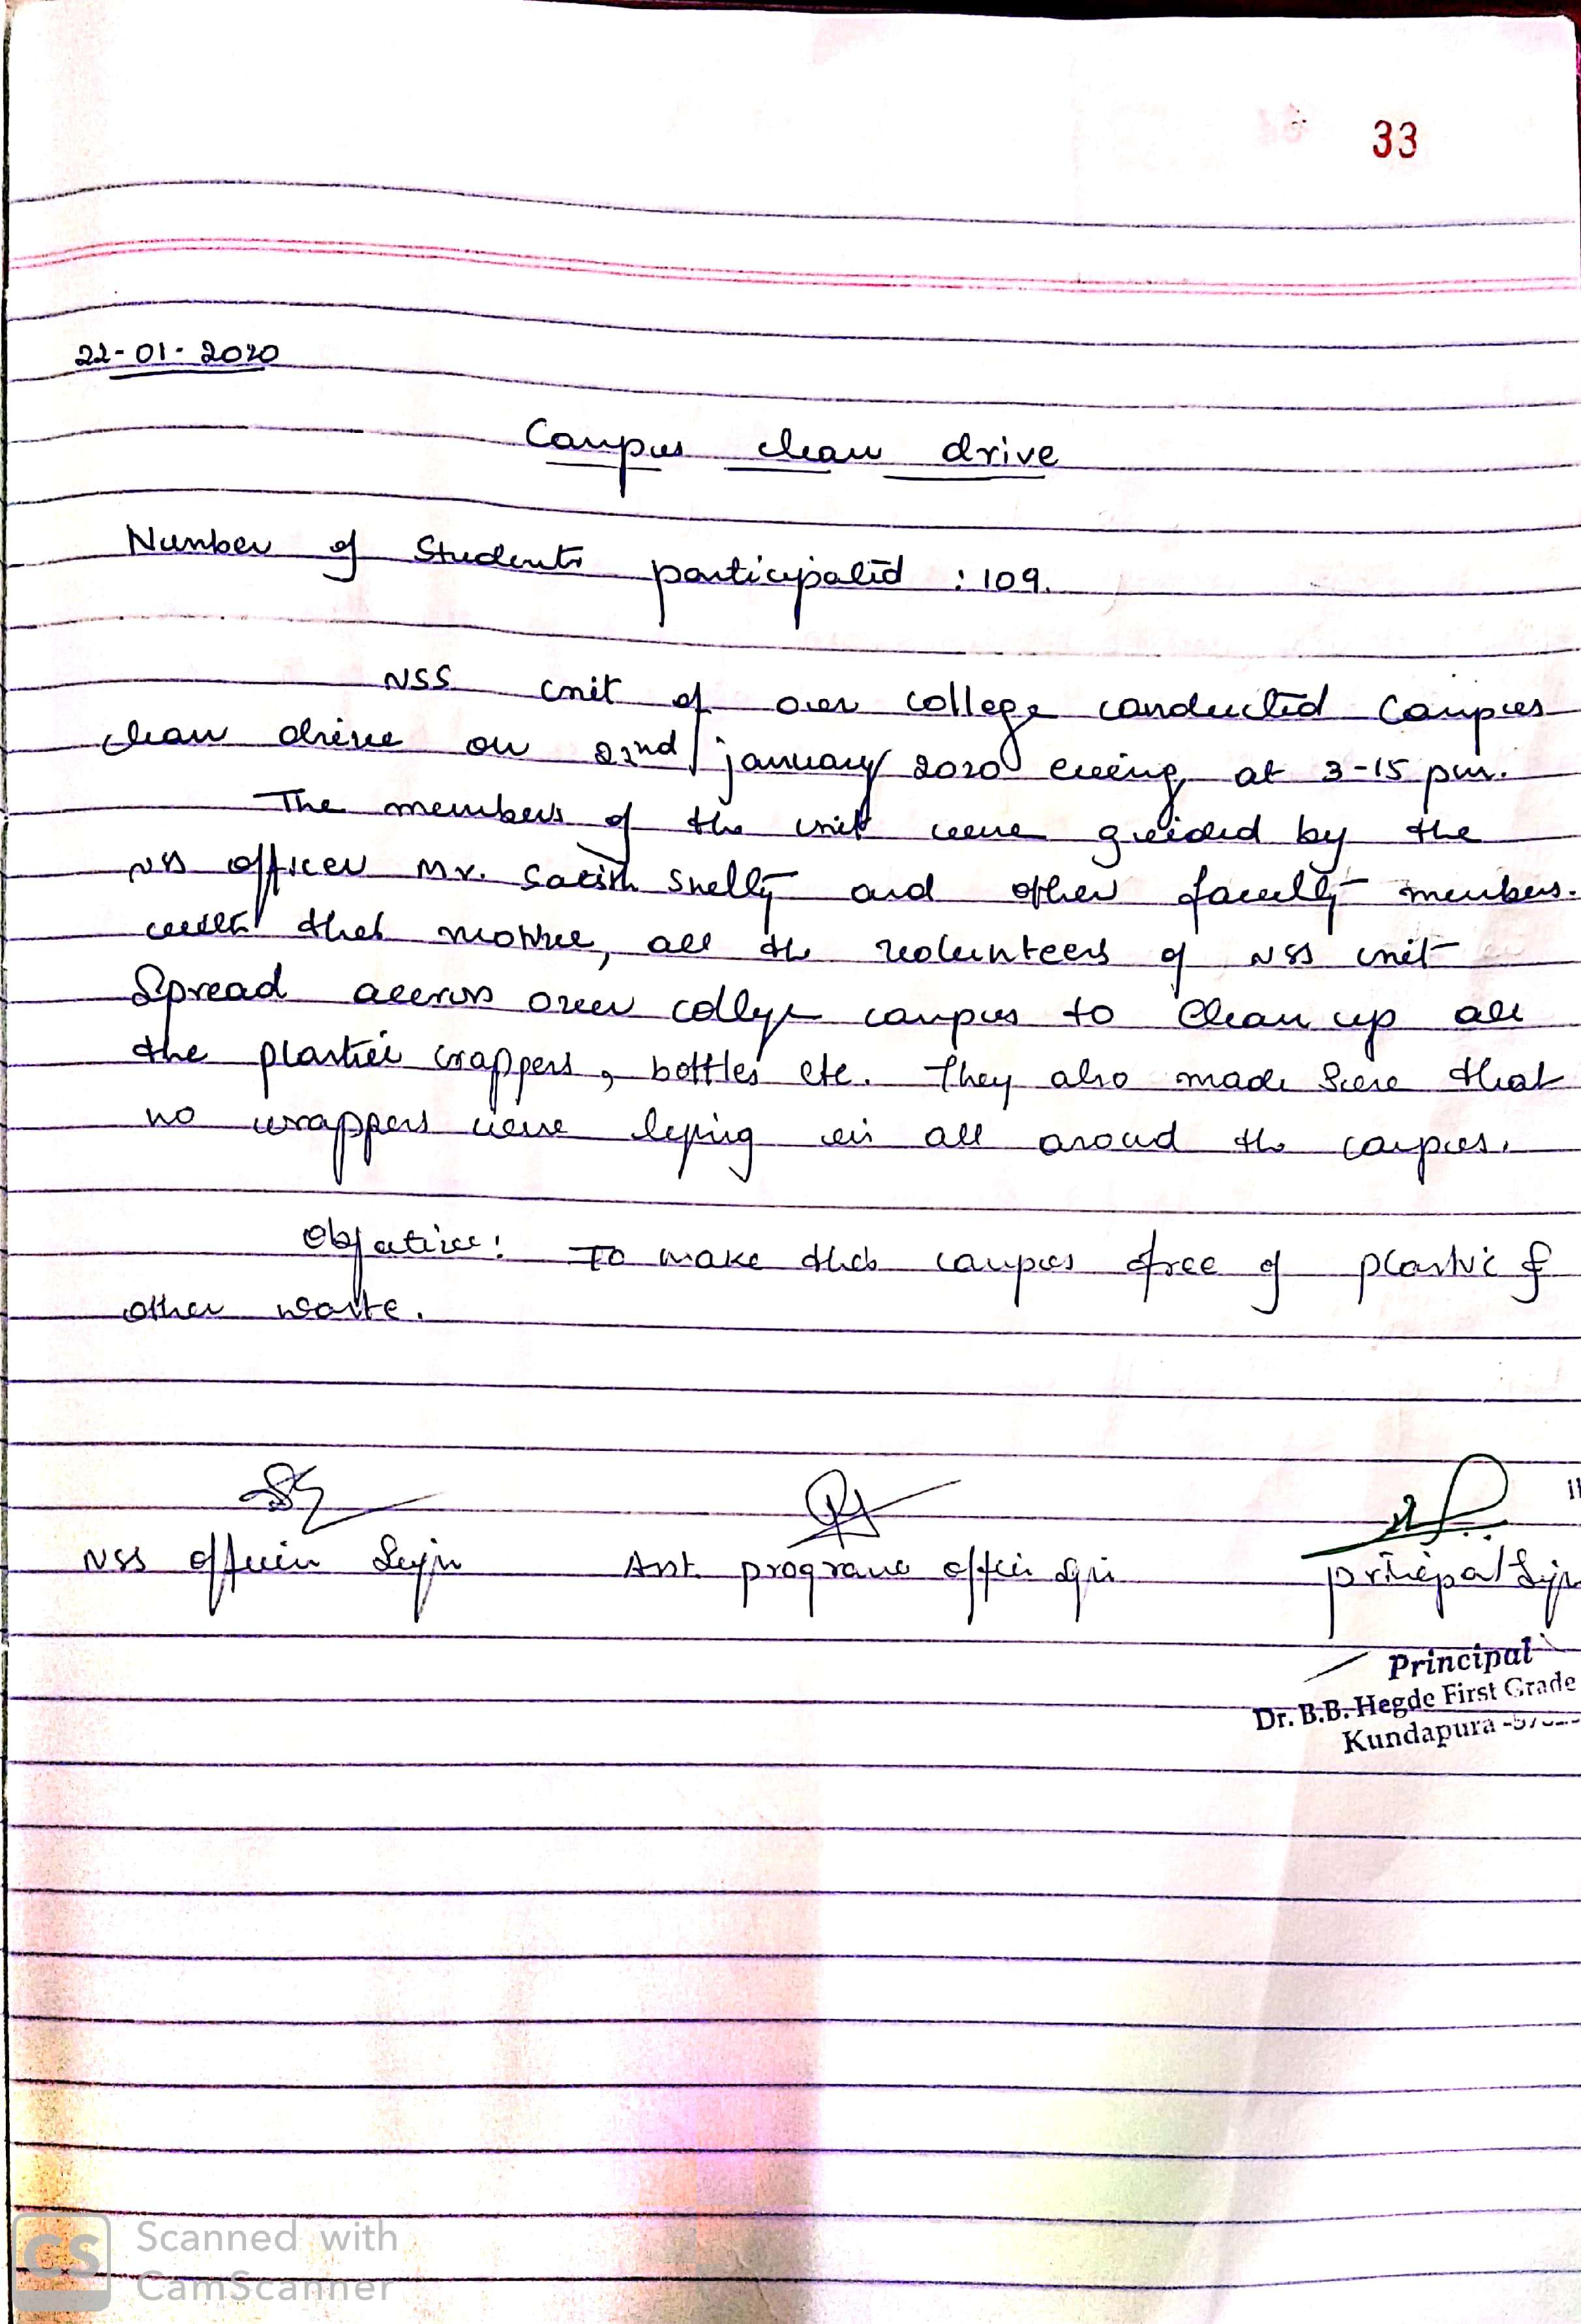 33
22-01-2020
Campus clean drive
Number of Students participated : 109.
NSS unit of our college conducted Campus
clean drive on 22nd january 2020 evening at 3-15 pm.
The members of the unit were guided by the
NSS officer Mr. Satish Shetty and other faculty members.
with that motive, all the volunteers of NSS unit
Spread accross over college campus to Clean up all
the plastic wrappers, bottles etc. They also made Sure that
no wrappers were lying in all aroud the campus.
Objective: To make the campus free of plastic &
other waste.
NSS officer Sign Asst. programe officer sign principal Sign
Principal
Dr. B.B. Hegde First Grade
Kundapura
CS Scanned with
CamScanner